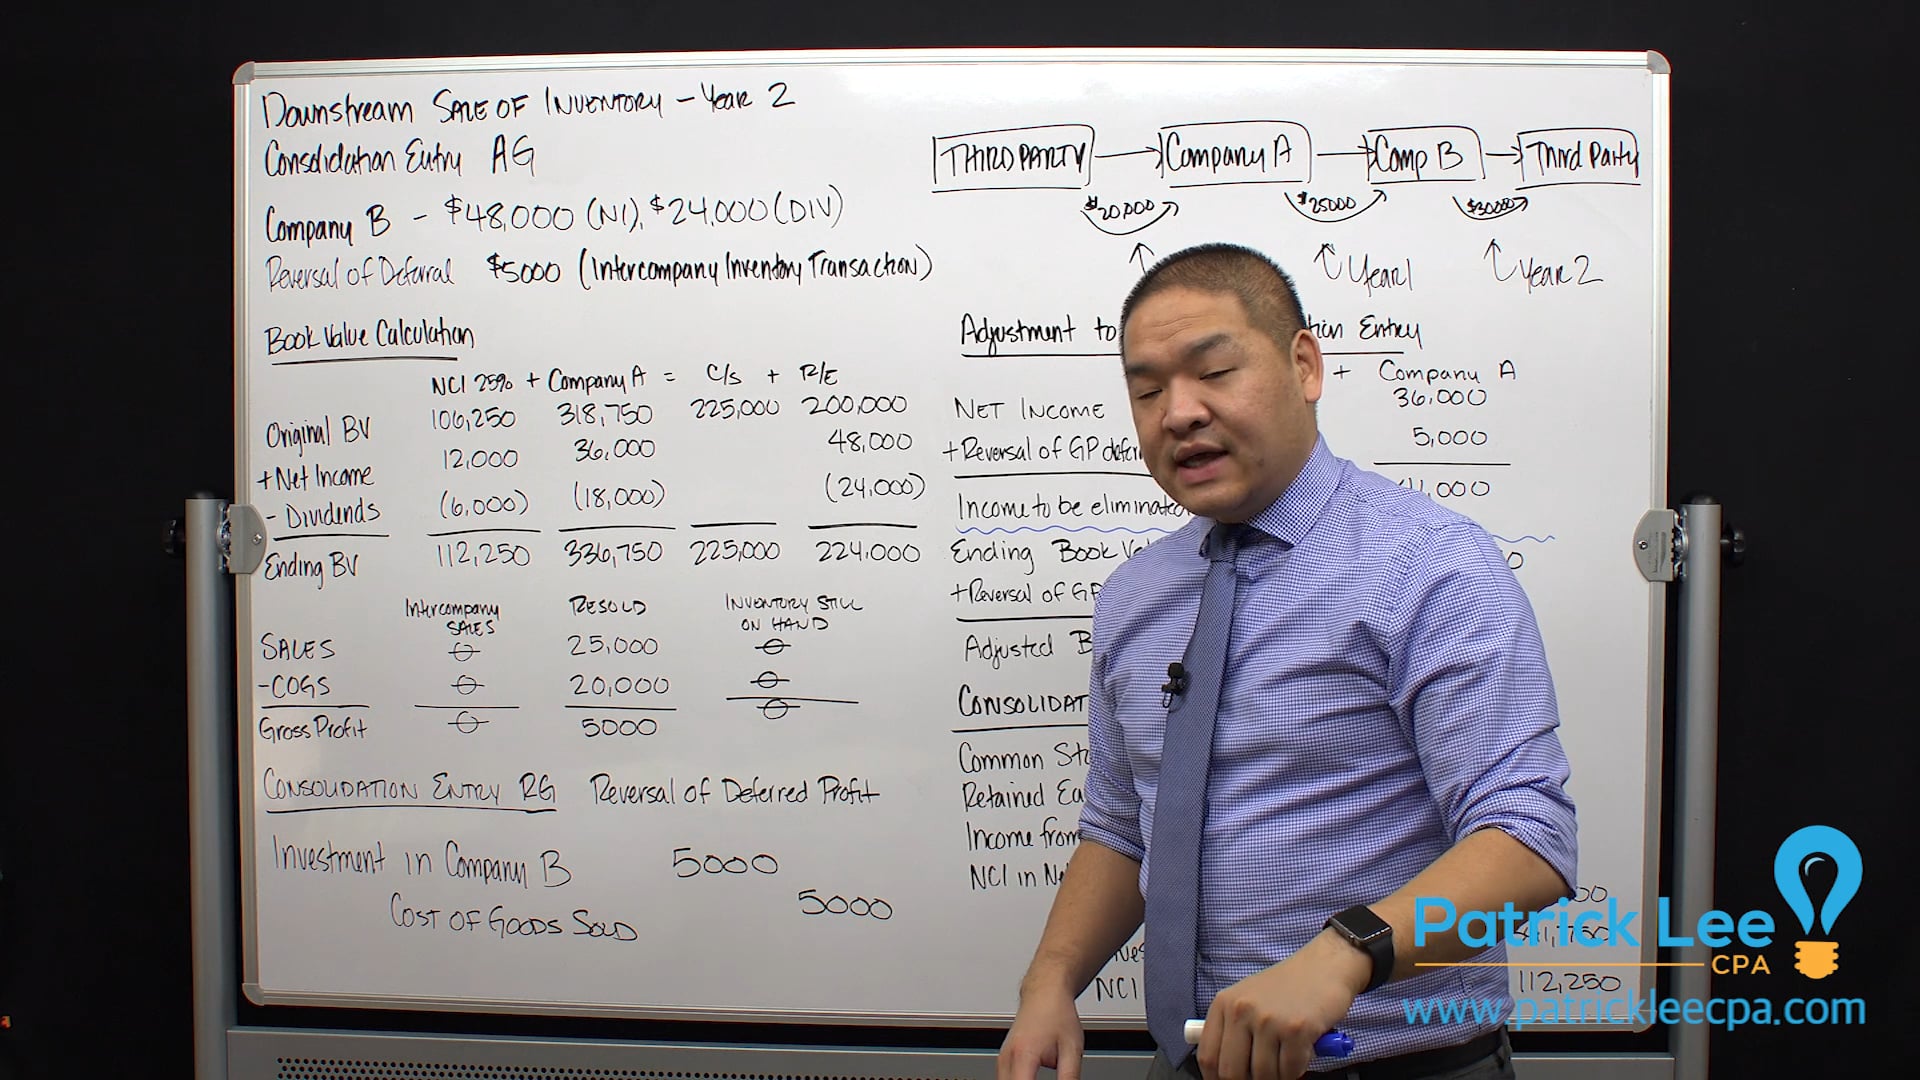 Downstream Sale of Inventory – Year 2
Consolidation Entry AG
Company B – $48,000 (NI), $24,000 (DIV)
Reversal of Deferral $5000 (Intercompany Inventory Transaction)
THIRD PARTY Company A Comp B Third Party
$20,000 $25000 $30000
Year 1 Year 2
Book Value Calculation
NCI 25% + Company A = C/S + R/E
Original BV 106,250 318,750 225,000 200,000
+ Net Income 12,000 36,000 48,000
- Dividends (6,000) (18,000) (24,000)
Ending BV 112,250 336,750 225,000 224,000
Intercompany Sales Resold Inventory Still on Hand
Sales 0 25,000 0
- COGS 0 20,000 0
Gross Profit 0 5000 0
Consolidation Entry RG Reversal of Deferred Profit
Investment in Company B 5000
Cost of Goods Sold 5000
Adjustment to Entry
+ Company A
Net Income 36,000
+ Reversal of GP 5,000
Income to be eliminated
Ending Book
+ Reversal of GP
Adjusted
Common
Retained
Income from
NCI in
NCI 112,250
Patrick Lee
CPA
www.patrickleecpa.com